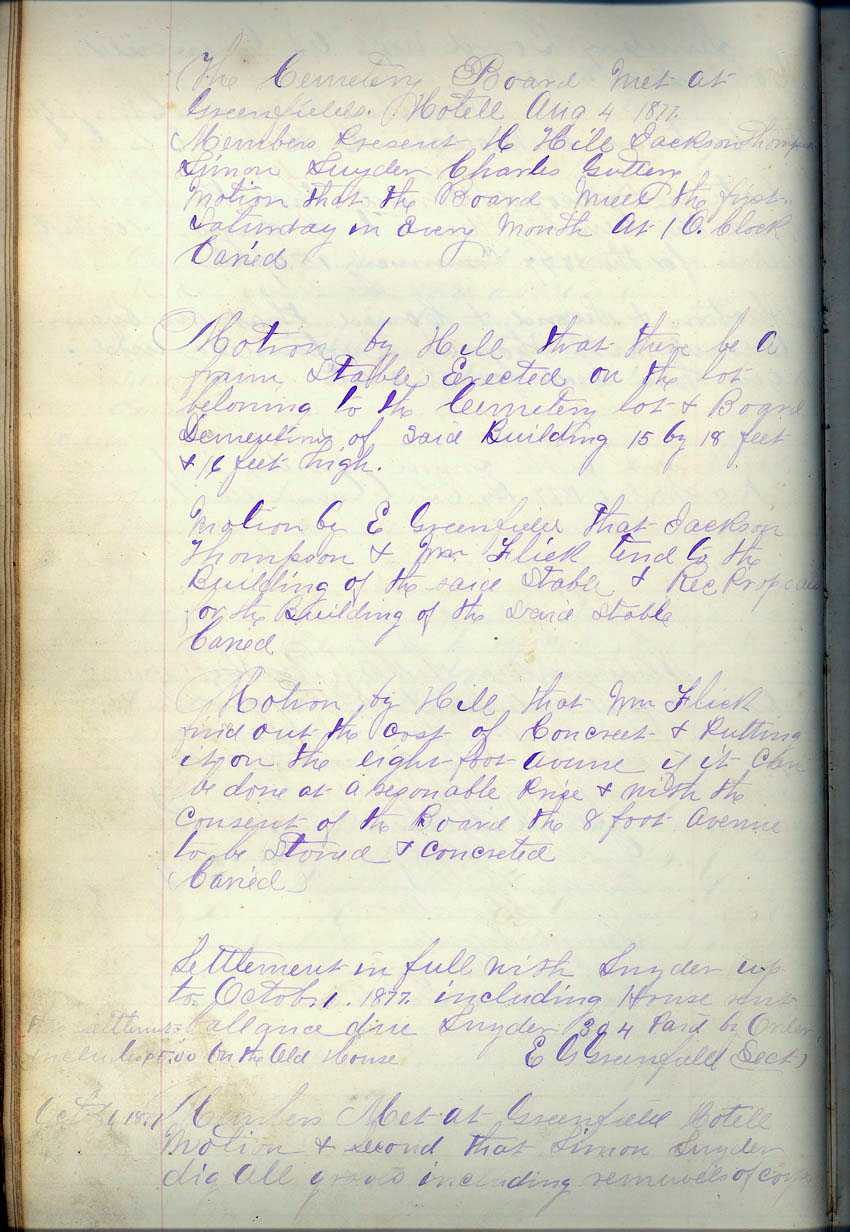 The Cemetery Board Met at
Greenfields. Hotell Aug 4 1877.
Members Present H Hill Jackson Thompson
Simon Snyder Charles
Motion that the Board Meet the first
Saturday in Every Month At 1 O. Clock
Caried
Motion by Hill that there be a
fraim Stable Erected on the lot
beloning to the Cemetery lot & Board
Dementins of Said Building 15 by 18 feet
& 16 feet high.
Motion by E Greenfield that Jackson
Thompson & Wm Flick tend to the
Building of the said Stable & Rec
for the Building of the Said Stable
Caried
Motion by Hill that Wm Flick
find out the Cost of Concreet & Putting
it on the eight foot avenue if it Can
be done at a Price & with the
Consent of the Board the 8 foot Avenue
to be Stoned & Concreted
(Caried)
Settlement in full with Snyder up
to Octob. 1. 1877. including House rent
this Ballance due Snyder 3 94 Paid by Order
includes 5.00 On the Old House E G Greenfield Sect)
Members Met at Greenfield Hotell
Motion & second that Simon Snyder
dig All including of